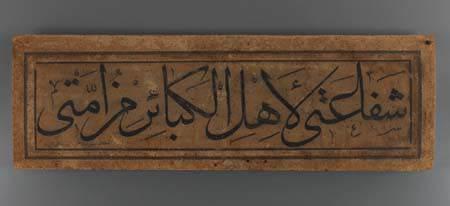 شفاعتي لأهل الكبائر من أمتي